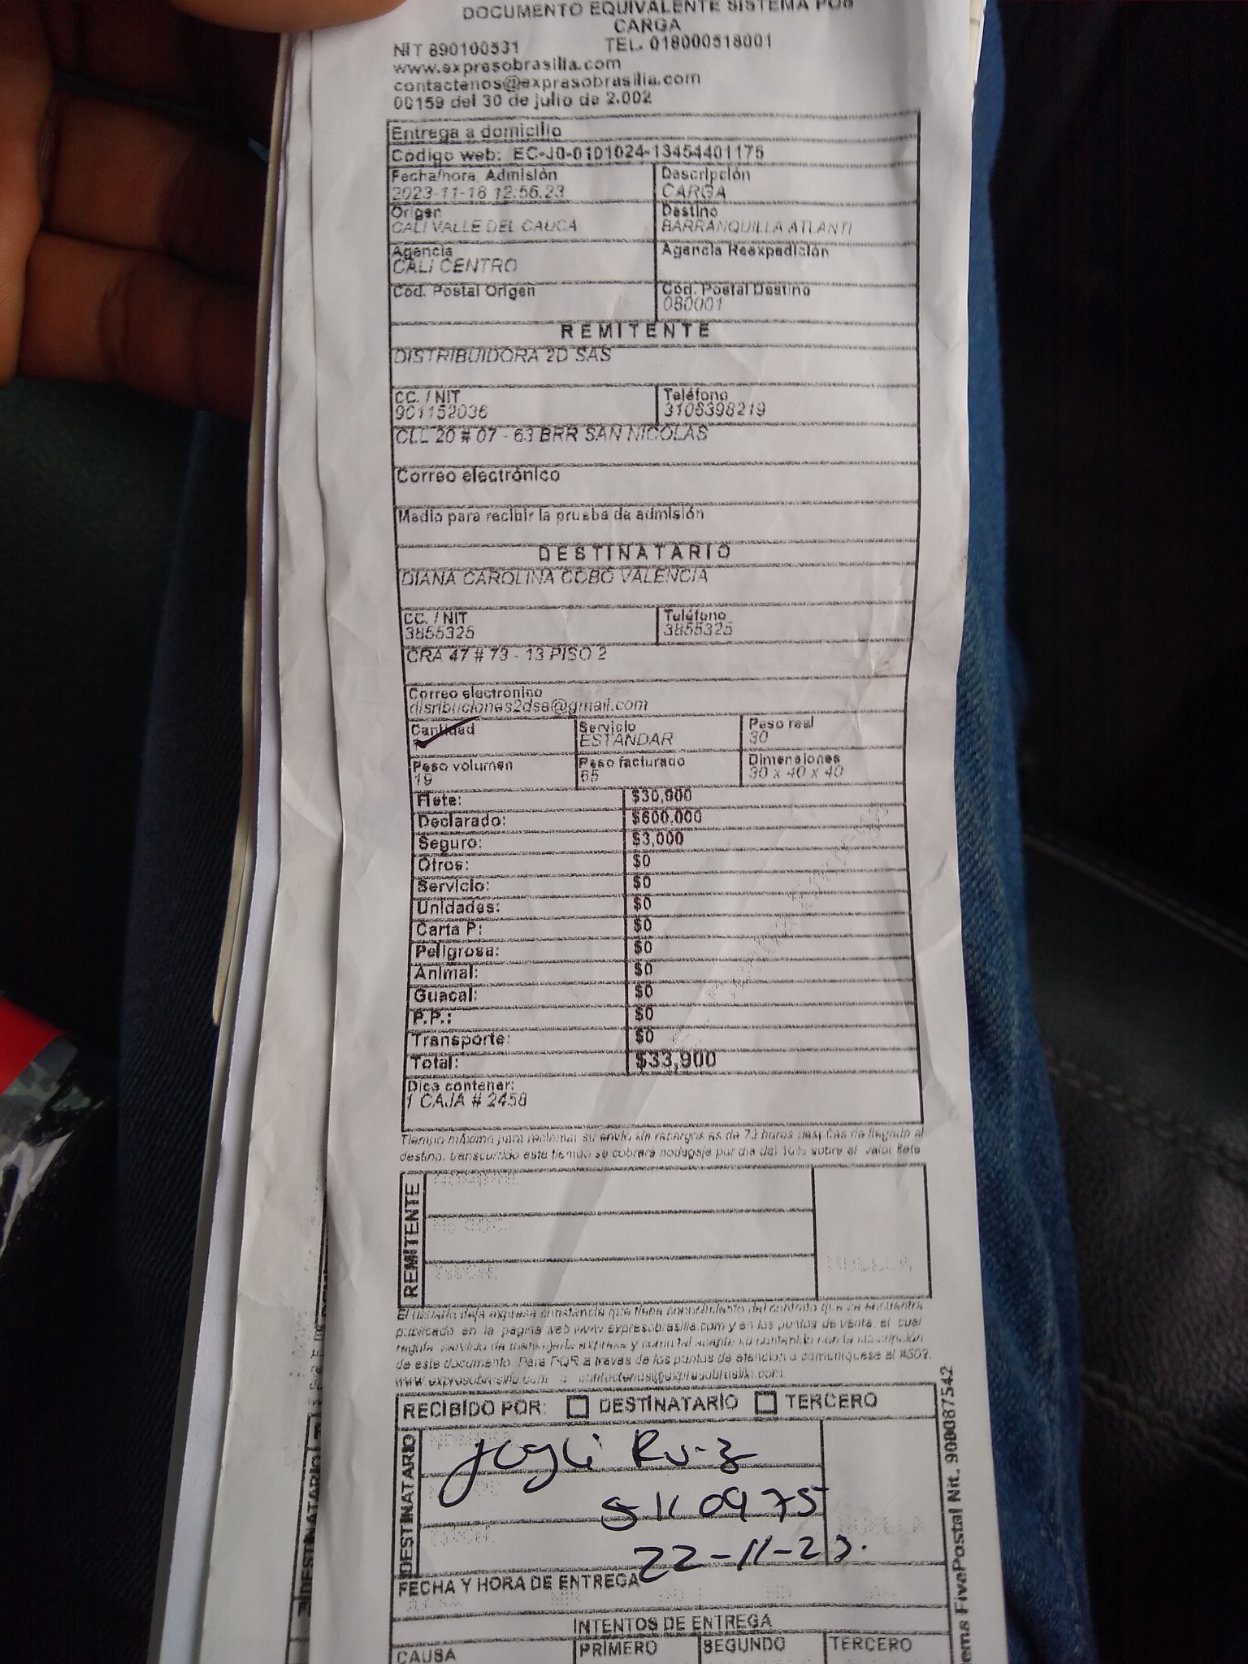 DOCUMENTO EQUIVALENTE SISTEMA POS
CARGA
NIT 890100531 TEL. 018000518001
www.expresobrasilia.com
contactenos@expresobrasilia.com
00159 del 30 de julio de 2.002
Entrega a domicilio
Código web: EC-J0-0101024-13454401175
Fecha/hora Admisión Descripción
2023-11-18 12:56.23 CARGA
Origen Destino
CALI VALLE DEL CAUCA BARRANQUILLA ATLANTI
Agencia Agencia Reexpedición
CALI CENTRO
Cod. Postal Origen Cod. Postal Destino
080001
REMITENTE
DISTRIBUIDORA 2D SAS
CC. / NIT Teléfono
901152036 3105398219
CLL 20 # 07 - 63 BRR SAN NICOLAS
Correo electrónico
Medio para recibir la prueba de admisión
DESTINATARIO
DIANA CAROLINA COBO VALENCIA
CC. / NIT Teléfono
3855325 3855325
CRA 47 # 73 - 13 PISO 2
Correo electrónico
disribuciones2dsa@gmail.com
Cantidad Servicio Peso real
ESTANDAR 30
Peso volumen Peso facturado Dimensiones
19 65 30 x 40 x 40
Flete: $30,900
Declarado: $600,000
Seguro: $3,000
Otros: $0
Servicio: $0
Unidades: $0
Carta P: $0
Peligrosa: $0
Animal: $0
Guacal: $0
P.P.: $0
Transporte: $0
Total: $33,900
Dice contener:
1 CAJA # 2458
Tiempo máximo para reclamar su envío sin recargos es de 72 horas después de llegado al
destino, transcurrido este tiempo se cobrará bodegaje por día del 10% sobre el valor flete
REMITENTE
El usuario deja expresa constancia que tiene conocimiento del contrato que se encuentra
publicado en la página web www.expresobrasilia.com y en los puntos de venta, el cual
regula servicio de mensajería expresa y como tal acepta su contenido con la suscripción
de este documento. Para PQR a través de los puntos de atención o comuníquese al #502.
www.expresobrasilia.com o contactenos@expresobrasilia.com
RECIBIDO POR: DESTINATARIO TERCERO
DESTINATARIO
Ruiz
5110975
22-11-23.
FECHA Y HORA DE ENTREGA
INTENTOS DE ENTREGA
CAUSA PRIMERO SEGUNDO TERCERO
FivePostal Nit. 900087542
DESTINATARIO